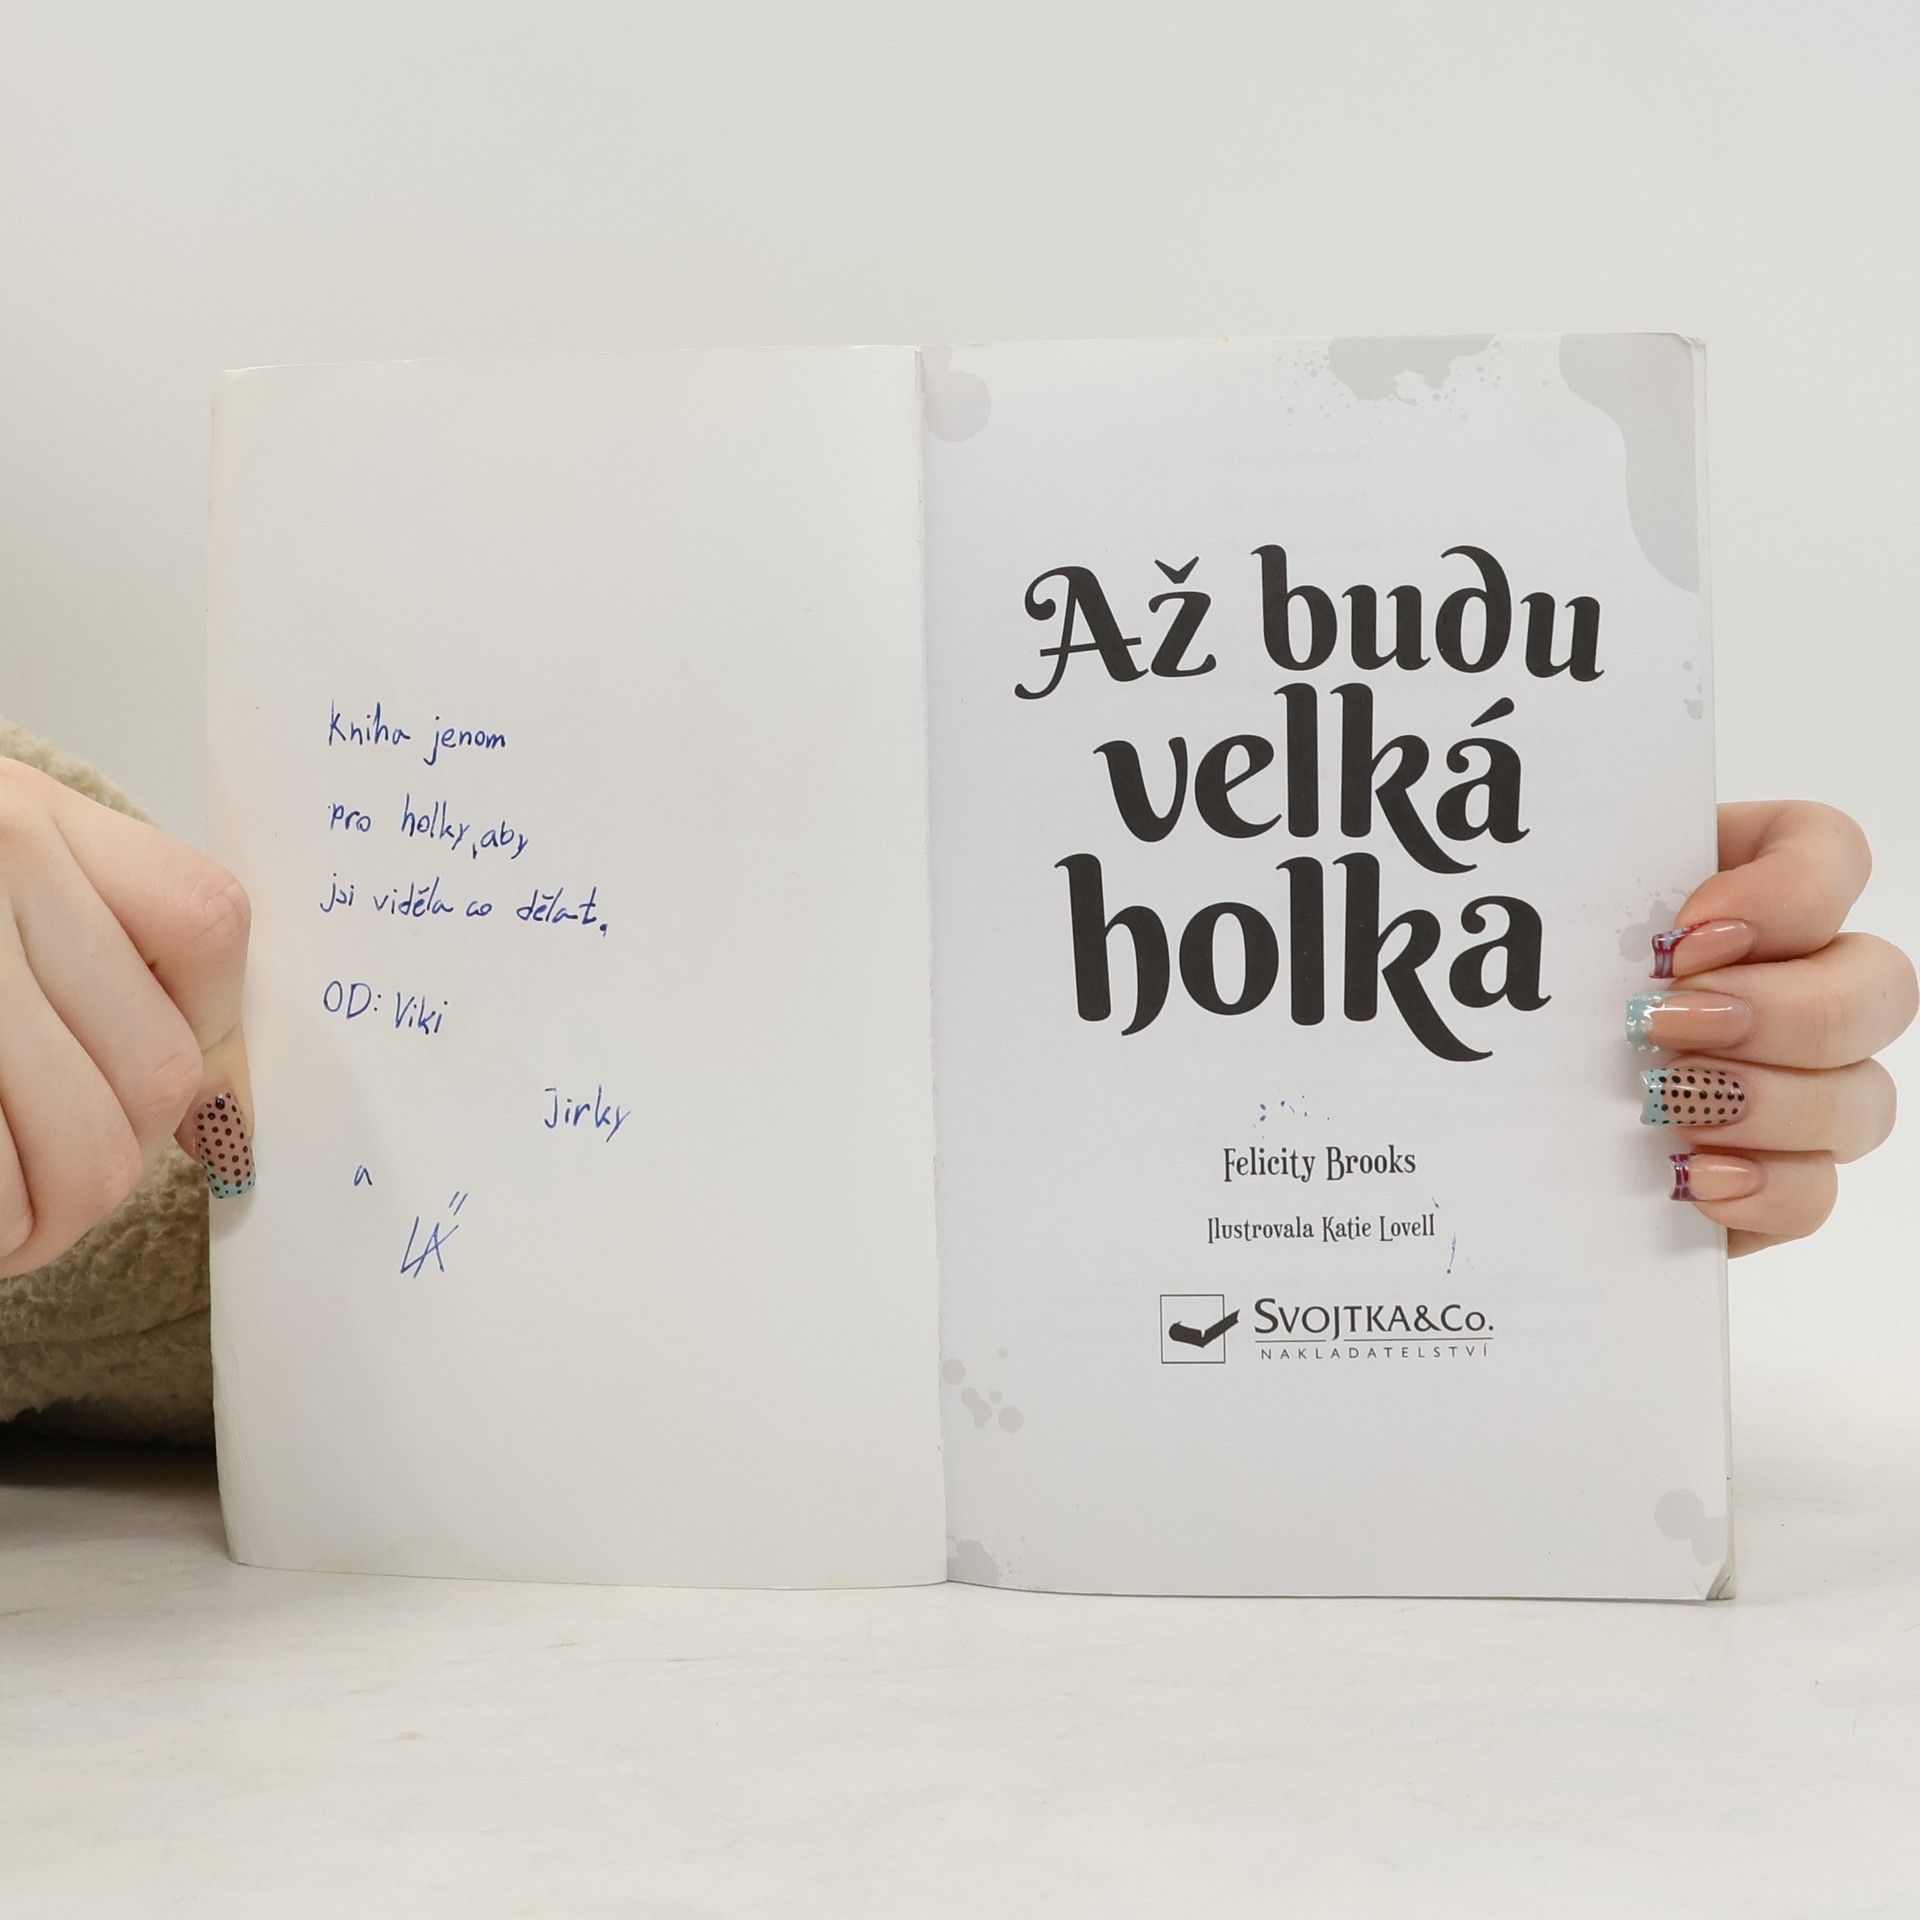 Kniha jenom
pro holky, aby
jsi viděla co dělat.
OD: Viki
Jirky
a
Až budu
velká
holka
Felicity Brooks
Ilustrovala Katie Lovell
SVOJTKA&CO.
NAKLADATELSTVÍ